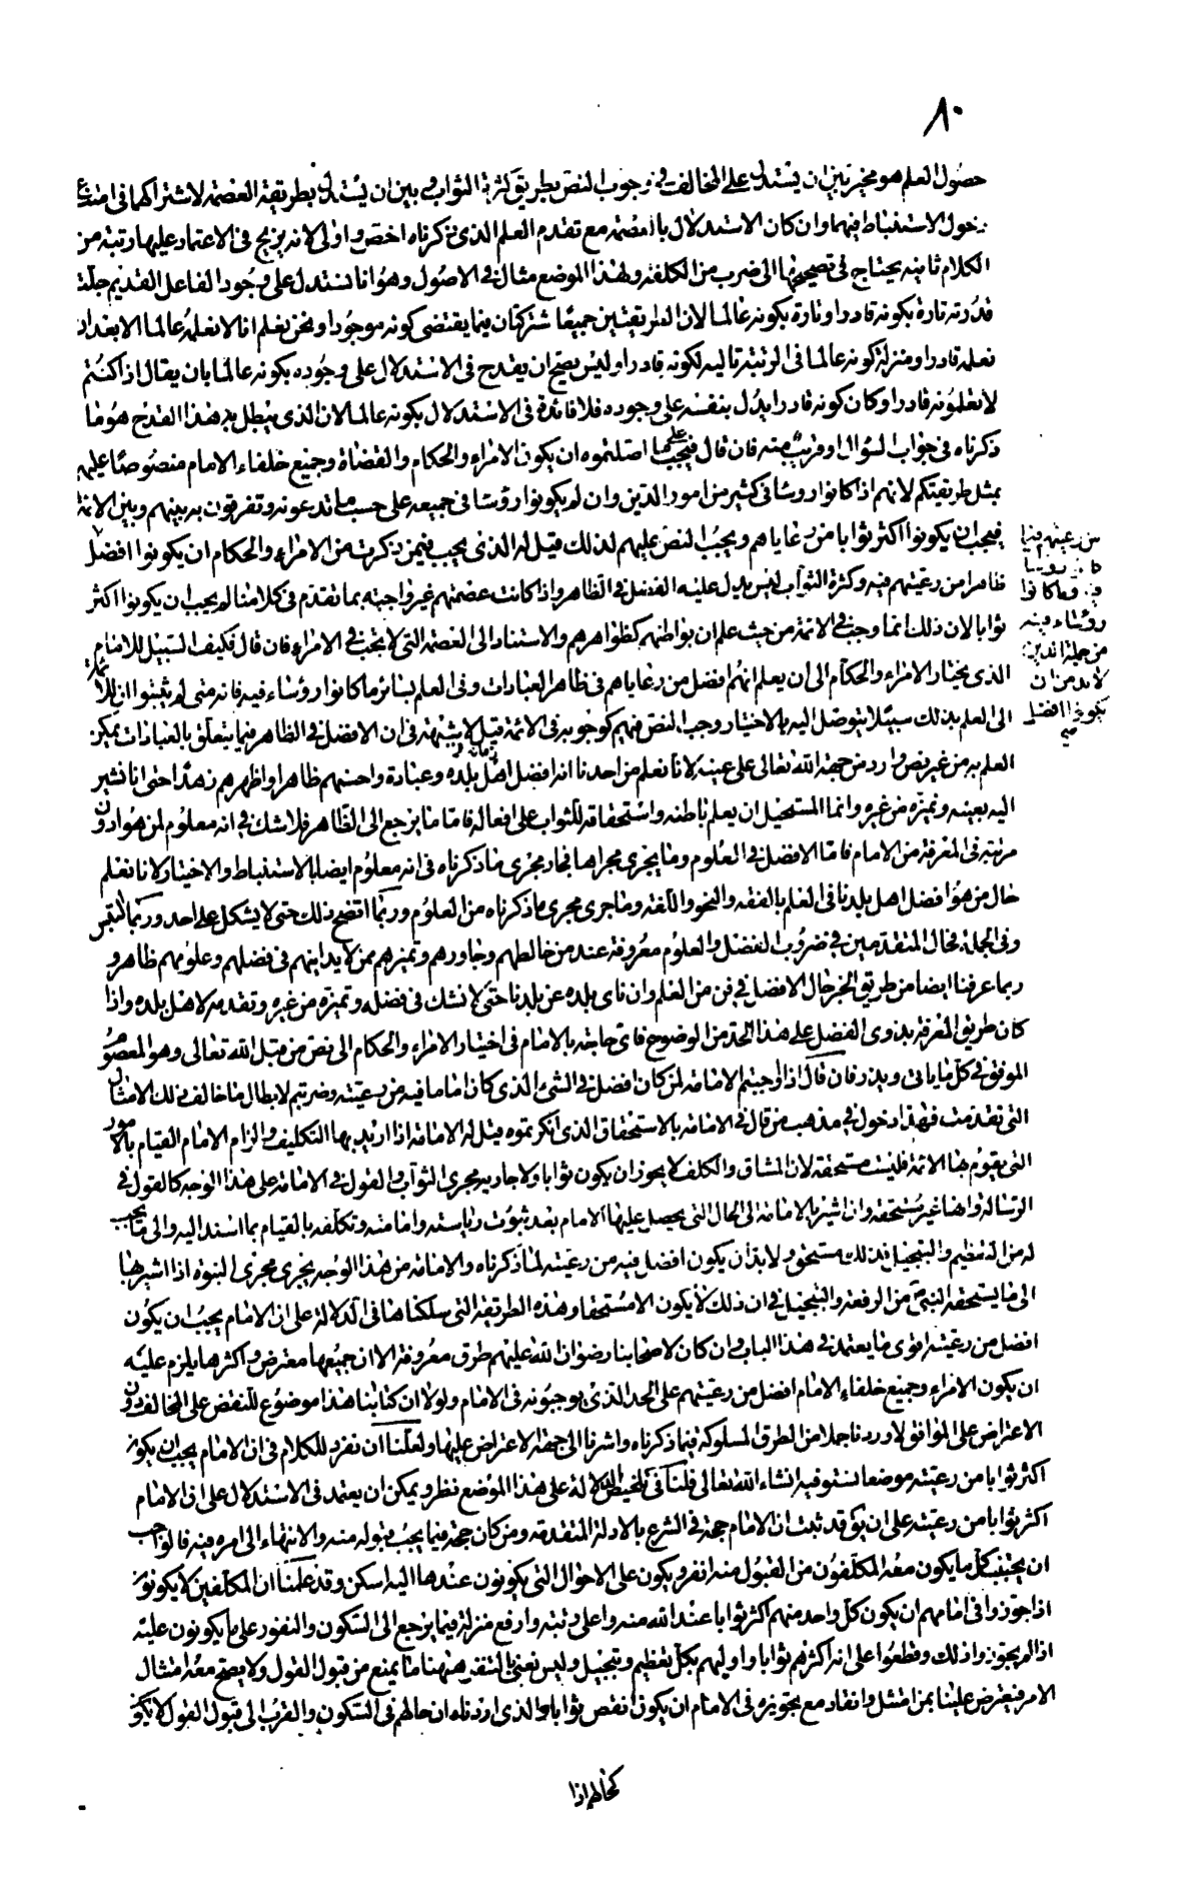 ٨٠
حصول العلم هو مخير بين ان يستدل على المخالف في وجوب النص بطريق كثرة الثواب وبين ان يستدل بطريقة العصمة لاشتراكهما في امتناع
دخول الاستنباط فيهما وان كان الاستدلال بالعصمة مع تقدم العلم الذي ذكرناه اخص واولى لانه يزيح في الاعتماد عليها رتبة من
الكلام ثانية يحتاج في تصحيحها الى ضرب من الكلفة ولهذا الموضع مثال في الاصول وهو انا نستدل على وجود الفاعل القديم جلت
قدرته تارة بكونه قادرا وتارة بكونه عالما لان الطريقتين جميعا شتركتان فيما يقتضى كونه موجودا ونحن نعلم انا لا نعلمه عالما الا بعد ان
نعلمه قادرا ومنزلة كونه عالما في الرتبة تاليه لكونه قادرا وليس يصح ان يقدح في الاستدلال على وجوده بكونه عالما بان يقال اذا كنتم
لا تعلمونه قادرا وكان كونه قادرا يدل بنفسه على وجوده فلا فائدة في الاستدلال بكونه عالما لان الذي يبطل به هذا القدح هو ما
ذكرناه في جواب السؤال وقريب منه فان قال فيجب على ما اصلتموه ان يكون الامراء والحكام والقضاة وجميع خلفاء الامام منصوصا عليهم
بمثل طريقتكم لانهم اذا كانوا روسا في كثير من امور الدين وان لم يكونوا رؤسا في جميعه على حسب ما تدعونه وتفرقون به بينهم وبين الائمة
فيجب ان يكونوا اكثر ثوابا من رعاياهم ويجب النص عليهم لذلك قيل له الذى يجب فيمن ذكرت من الامراء والحكام ان يكونوا افضل
ظاهرا من رعيتهم فيه وكثرة الثواب ليس يدل عليه الفضل في الظاهر واذا كانت عصمتهم غير واجبة بما تقدم في كلامنا لم يجب ان يكونوا اكثر
ثوابا لان ذلك انما وجب في الائمة من حيث علم ان بواطنهم كظواهرهم والاستناد الى العصمة التى لا تجب في الامراء فان قال فكيف السبيل للامام
الذى يختار الامراء والحكام الى ان يعلم انهم افضل من رعاياهم في ظاهر العبادات وفي العلم بسائر ما كانوا رؤساء فيه فانه متى لم تثبتوا ان للائمة
الى العلم بذلك سبيلا يتوصل اليه بالاختيار وجب النص فيهم كوجوبه في الائمة قيل لا شبهة في ان الافضل في الظاهر فيما يتعلق بالعبادات يمكن
العلم به من غير نص وارد من جهة الله تعالى على عينه لانا نعلم من احدنا انه افضل اهل زمانه وبلده وعبادة واحسنهم ظاهرا واظهرهم زهدا حتى انا نشير
اليه بعينه ونميزه من غيره وانما المستحيل ان يعلم باطنه واستحقاقه للثواب على افعاله فاما ما يرجع الى الظاهر فلا شك في انه معلوم لمن هو ادون
مرتبة في المعرفة من الامام فاما الافضل في العلوم وما يجرى مجراها فجار مجرى ما ذكرناه في انه معلوم ايضا بالاستنباط والاختيار لانا نعلم
حال من هو افضل اهل بلدنا في العلم بالفقه والنحو واللغة وما جرى مجرى ما ذكرناه من العلوم وربما اتضح ذلك حتى لا يشكل على احد وربما التبس
وفي الجملة فحال المتقدمين في ضروب الفضل والعلوم معروفة عند من خالطهم وجاورهم وتميزهم ممن لا يدانيهم في فضلهم وعلومهم ظاهر و
ربما عرفنا ايضا من طريق الخبر حال الافضل في فن من العلم وان ناى بلده عن بلدنا حتى لا نشك في فضله وتميزه من غيره وتقدمه لاهل بلده واذا
كان طريق المعرفة بذوى الفضل على هذا الحد من الوضوح فاى حاجة بالامام في اختيار الامراء والحكام الى نص من قبل الله تعالى وهو المعصوم
الموفق في كل ما ياتى ويذر فان قال اذا اوجبتم الامامة لمن كان افضل في الشىء الذى كان اماما فيه من رعيته وضربتم لابطال ما خالف ذلك الامثال
التى تقدمت فهذا دخول في مذهب من قال في الامامة بالاستحقاق الذى انكرتموه قيل له الامامة اذا اريد بها التكليف والزام الامام القيام بالامور
التى يقوم بها الائمة فليست مستحقة لان المشاق والكلف لا يجوز ان يكون ثوابا ولا جاريه مجرى الثواب والقول في الامامة على هذا الوجه كالقول في
الرسالة وانها غير مستحقه وان اشير بالامامة الى الحال التى يحصل عليها الامام بعد ثبوت رياسته وامامته وتكلفه بالقيام بما اسند اليه والى ما يجب
له من التعظيم والتبجيل فذلك مستحق ولا بد ان يكون افضل فيه من رعيته لما ذكرناه والامامة من هذا الوجه يجرى مجرى النبوة اذا اشير بها
الى ما يستحقه النبي من الرفعة والتبجيل في ان ذلك لا يكون الا مستحقا وهذه الطريقة التى سلكناها في الدلالة على ان الامام يجب ان يكون
افضل من رعيته اقوى ما يعتمد في هذا الباب وان كان لاصحابنا رضوان الله عليهم طرق معروفة الا ان جميعها معترض واكثرها يلزم عليه
ان يكون الامراء وجميع خلفاء الامام افضل من رعيتهم على الحد الذى يوجبونه في الامام ولولا ان كتابنا هذا موضوع للنقض على المخالف دون
الاعتراض على الموافق لاوردنا جملا من الطرق المسلوكة فيما ذكرناه واشرنا الى جهة الاعتراض عليها ولعلنا ان نفرد للكلام في ان الامام يجب ان يكون
اكثر ثوابا من رعيته موضعا نستوفيه انشاء الله تعالى فلنا في تلخيص الدلالة على هذا الموضع نظر ويمكن ان يعتمد في الاستدلال على ان الامام
اكثر ثوابا من رعيته على ان يق قد ثبت ان الامام حجة في الشرع بالادلة المتقدمة ومن كان حجة فيما يجب قبوله منه والانتهاء الى امره فيه فالواجب
ان يجنب كل ما يكون معه المكلفون من القبول منه انفر ويكون على الاحوال التى يكونون عندها اليه اسكن وقد علمنا ان المكلفين لا يكونون
اذا جوزوا في امامهم ان يكون كل واحد منهم اكثر ثوابا عند الله منه واعلى رتبه وارفع منزلة فيما يرجع الى السكون والنفور على ما يكونون عليه
اذا لم يجوزوا ذلك وقطعوا على انه اكثرهم ثوابا واولهم بكل تعظيم وتبجيل وليس نعنى بالتنفير هيهنا ما يمنع من قبول القول ولا يصح معه امتثال
الامر فيعترض علينا بمن امتثل وانقاد مع تجويزه في الامام ان يكون انقص ثوابا والذى اردناه ان حالهم في السكون والقرب الى قبول القول لا يكون
كحالهم اذا
من رعيتهم فيما
كانوا روسا
فيه فما كانوا
رؤساء فيه
من جملة الدين
لا بد من ان
يكونوا افضل